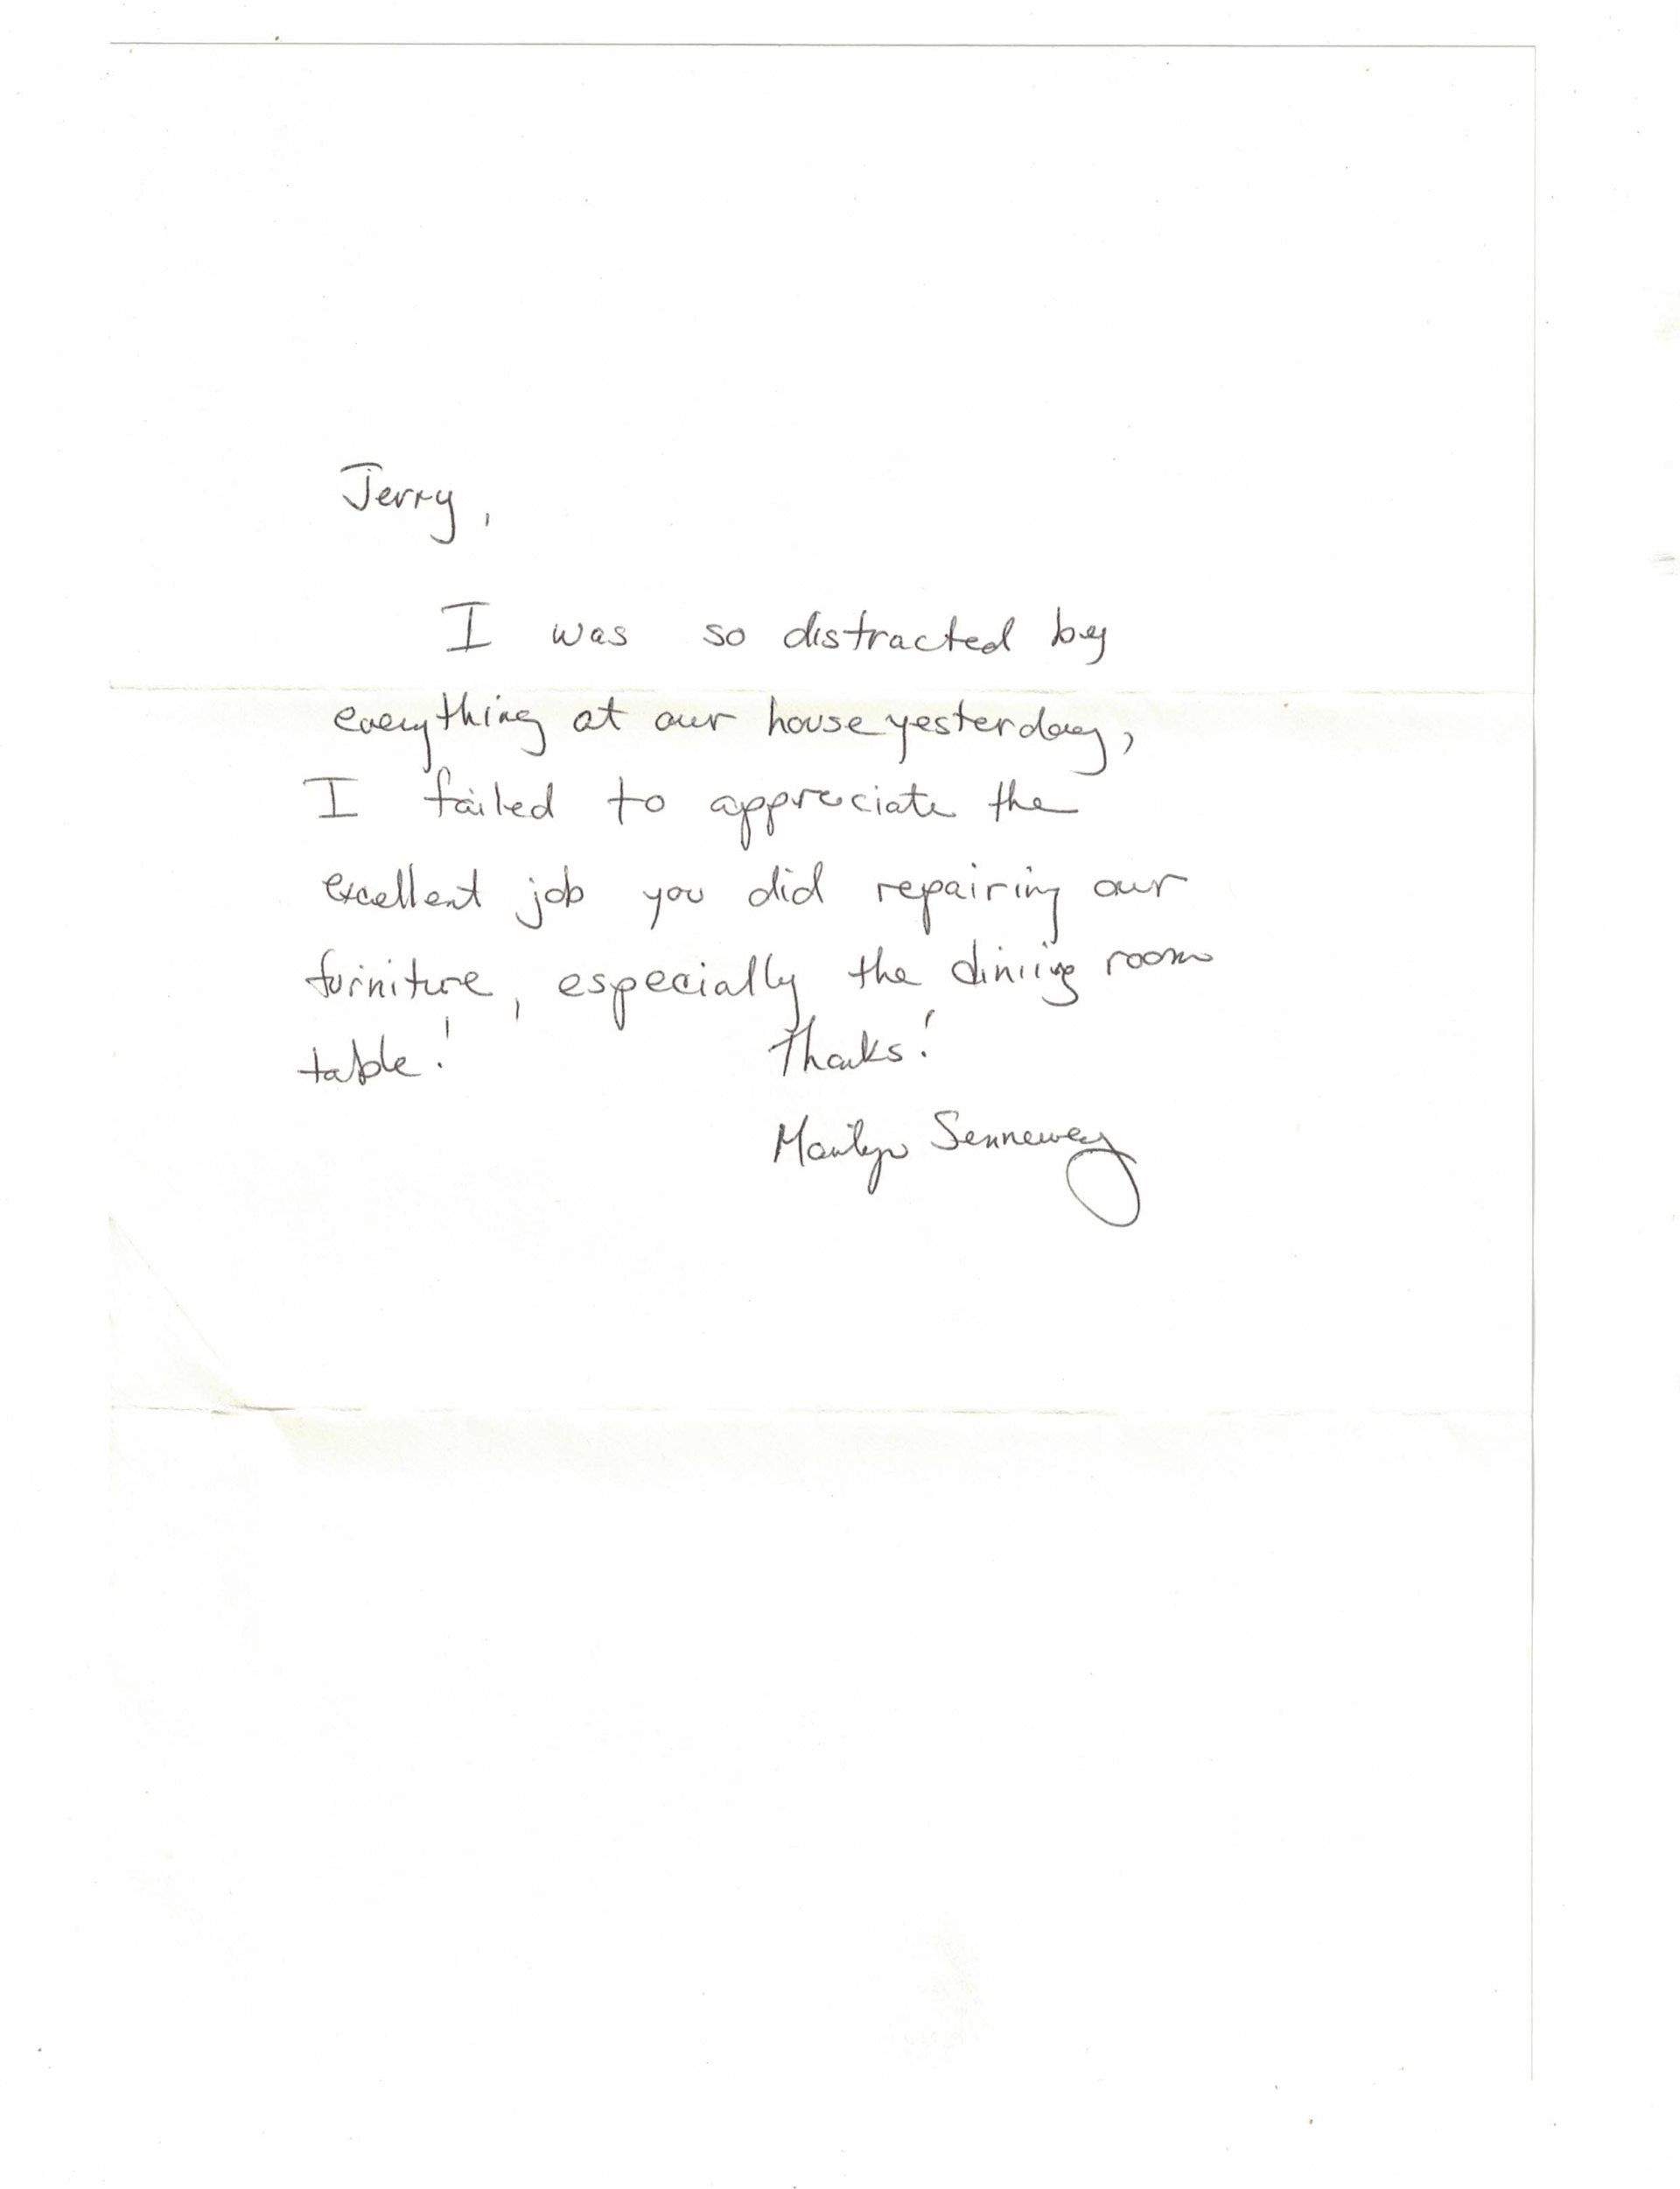 Jerry,
I was so distracted by
everything at our house yesterday,
I failed to appreciate the
excellent job you did repairing our
furniture, especially the dining room
table! Thanks!
Marilyn Senneway